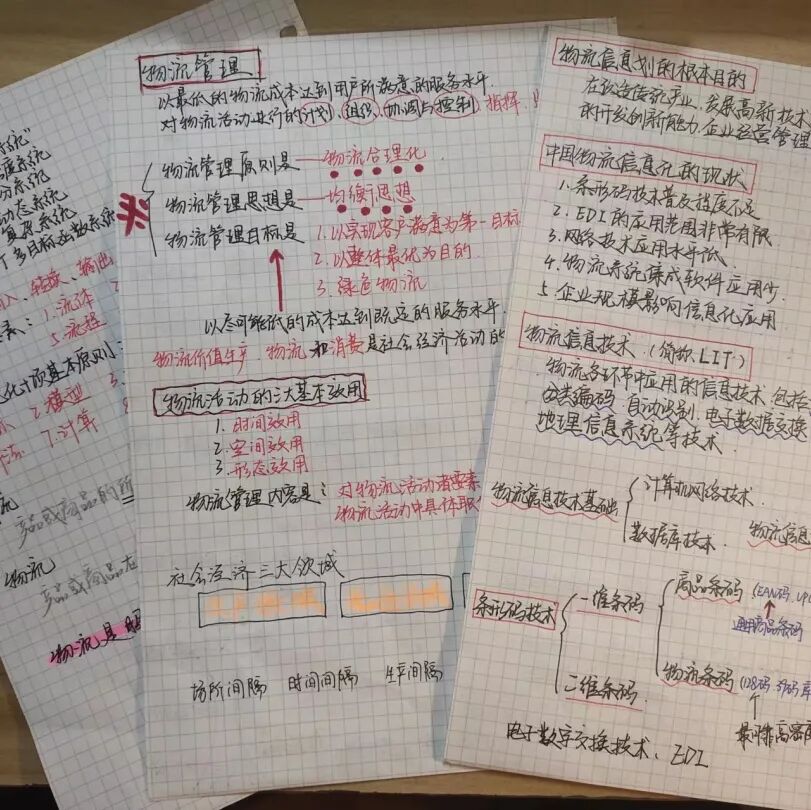 系统
动态系统
复杂系统
多目标函数系统
转换、输出
1.流体
5.流程
基本原则
2.模型
7.计算
商品的所
物流
物流是
物流管理
以最低的物流成本达到用户所满意的服务水平.
对物流活动进行的计划、组织、协调与控制 指挥
物流管理原则是——物流合理化
物流管理思想是——均衡思想
物流管理目标是 1.以实现客户满意为第一目标
2.以整体最优为目的
3.绿色物流
以尽可能低的成本达到既定的服务水平.
物流价值生产 物流 和消费是社会经济活动的
物流活动的三大基本效用
1.时间效用
2.空间效用
3.形态效用
物流管理内容是: 对物流活动诸要素
物流活动中具体职
社会经济三大领域
场所间隔 时间间隔 生产间隔
物流信息划的根本目的
在改造传统产业,发展高新技术
的开发创新能力,企业经营管理
中国物流信息化的现状
1.条形码技术普及程度不足
2.EDI的应用范围非常有限
3.网络技术应用水平低
4.物流系统集成软件应用少
5.企业规模影响信息化应用
物流信息技术(简称LIT)
物流各环节中应用的信息技术.包括
分类编码,自动识别,电子数据交换
地理信息系统等技术
物流信息技术基础
计算机网络技术.
数据库技术. 物流信息
条形码技术
一维条码
商品条码 (EAN码、UP
通用商品条码
物流条码 (128码、39码、库
二维条码.
电子数字交换技术、EDI